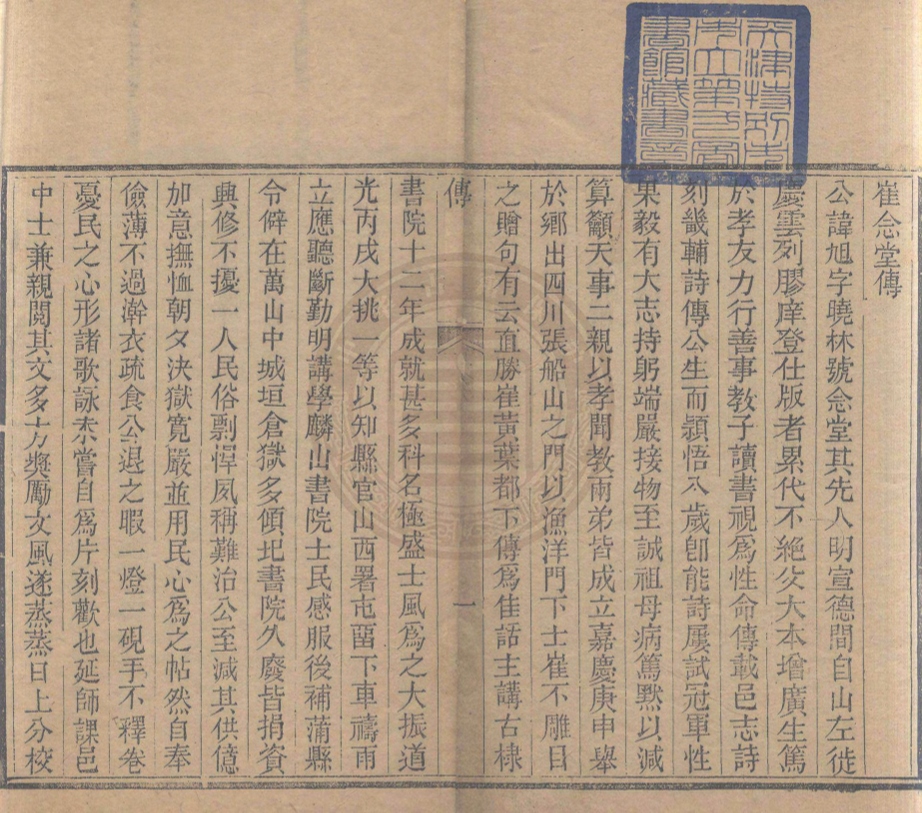 崔念堂傳
公諱旭字曉林號念堂其先人明宣德間自山左徙
慶雲列膠庠登仕版者累代不絕父大本增廣生篤
於孝友力行善事教子讀書視爲性命傳載邑志詩
刻畿輔詩傳公生而頴悟八歲卽能詩屢試冠軍性
果毅有大志持躬端嚴接物至誠祖母病篤默以減
算籲天事二親以孝聞教兩弟皆成立嘉慶庚申舉
於鄉出四川張船山之門以漁洋門下士崔不雕目
之贈句有云直勝崔黃葉都下傳爲佳話主講古棣
傳
一
書院十二年成就甚多科名極盛士風爲之大振道
光丙戌大挑一等以知縣官山西署屯留下車禱雨
立應聽斷勤明講學麟山書院士民感服後補蒲縣
令僻在萬山中城垣倉獄多傾圯書院久廢皆捐資
興修不擾一人民俗剽悍夙稱難治公至減其供億
加意撫恤朝夕決獄寬嚴並用民心爲之帖然自奉
儉薄不過澣衣疏食公退之暇一燈一硯手不釋卷
憂民之心形諸歌詠未嘗自爲片刻歡也延師課邑
中士兼親閱其文多方獎勵文風遂蒸蒸日上分校
天津特別市
市立第二圖
書館藏書章